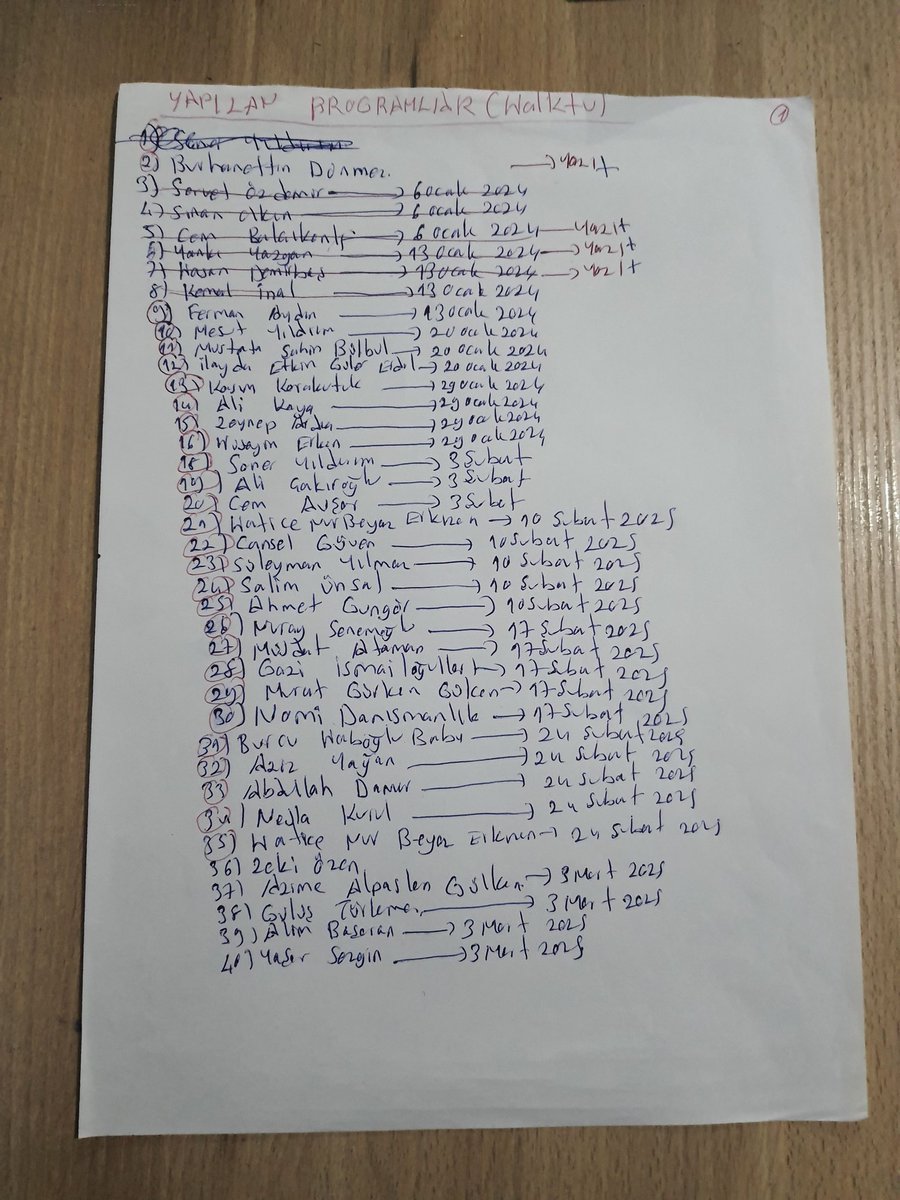 YAPILAN PROGRAMLAR (Walktv)
1
1) Sena Yıldırım
2) Burhanettin Dönmez → Yazıt
3) Servet Özdemir → 6 ocak 2024
4) Sinan → 6 ocak 2024
5) Cem Balaikenlı → 6 ocak 2024 → Yazıt
6) Yankı Yazgan → 13 ocak 2024 → Yazıt
7) Hasan → 13 ocak 2024 → Yazıt
8) Kemal inal → 13 ocak 2024
9) Ferman Aydın → 13 ocak 2024
10) Mesut Yıldırım → 20 ocak 2024
11) Mustafa Şahin Bülbül → 20 ocak 2024
12) ilayda Etkin Güler → 20 ocak 2024
13) Kasım Karakütük → 29 ocak 2024
14) Ali Kaya → 29 ocak 2024
15) Zeynep → 29 ocak 2024
16) Hüseyin Erkan → 29 ocak 2024
18) Soner Yıldırım → 3 Şubat
19) Ali Çakıroğlu → 3 Şubat
20) Cem Avşar → 3 Şubat
21) Hatice Nur Beyaz Erkızan → 10 Şubat 2025
22) Cansel Güven → 10 Şubat 2025
23) Süleyman Yılmaz → 10 Şubat 2025
24) Salim Ünsal → 10 Şubat 2025
25) Ahmet Güngör → 10 Şubat 2025
26) Nuray Senemoğlu → 17 Şubat 2025
27) Müjdat Ataman → 17 Şubat 2025
28) Gazi ismailoğulları → 17 Şubat 2025
29) Murat Gürkan Gülcan → 17 Şubat 2025
30) Nomi Danışmanlık → 17 Şubat 2025
31) Burcu Baby → 24 Şubat 2025
32) Aziz Yağan → 24 Şubat 2025
33) Abdullah Damar → 24 Şubat 2025
34) Nejla Kurul → 24 Şubat 2025
35) Hatice Nur Beyaz Erkızan → 24 Şubat 2025
36) Zeki Özen
37) Azime Alpaslan Gülken → 3 Mart 2025
38) Gülüş Türkmen → 3 Mart 2025
39) Alim Başaran → 3 Mart 2025
40) Yaşar Sezgin → 3 Mart 2025